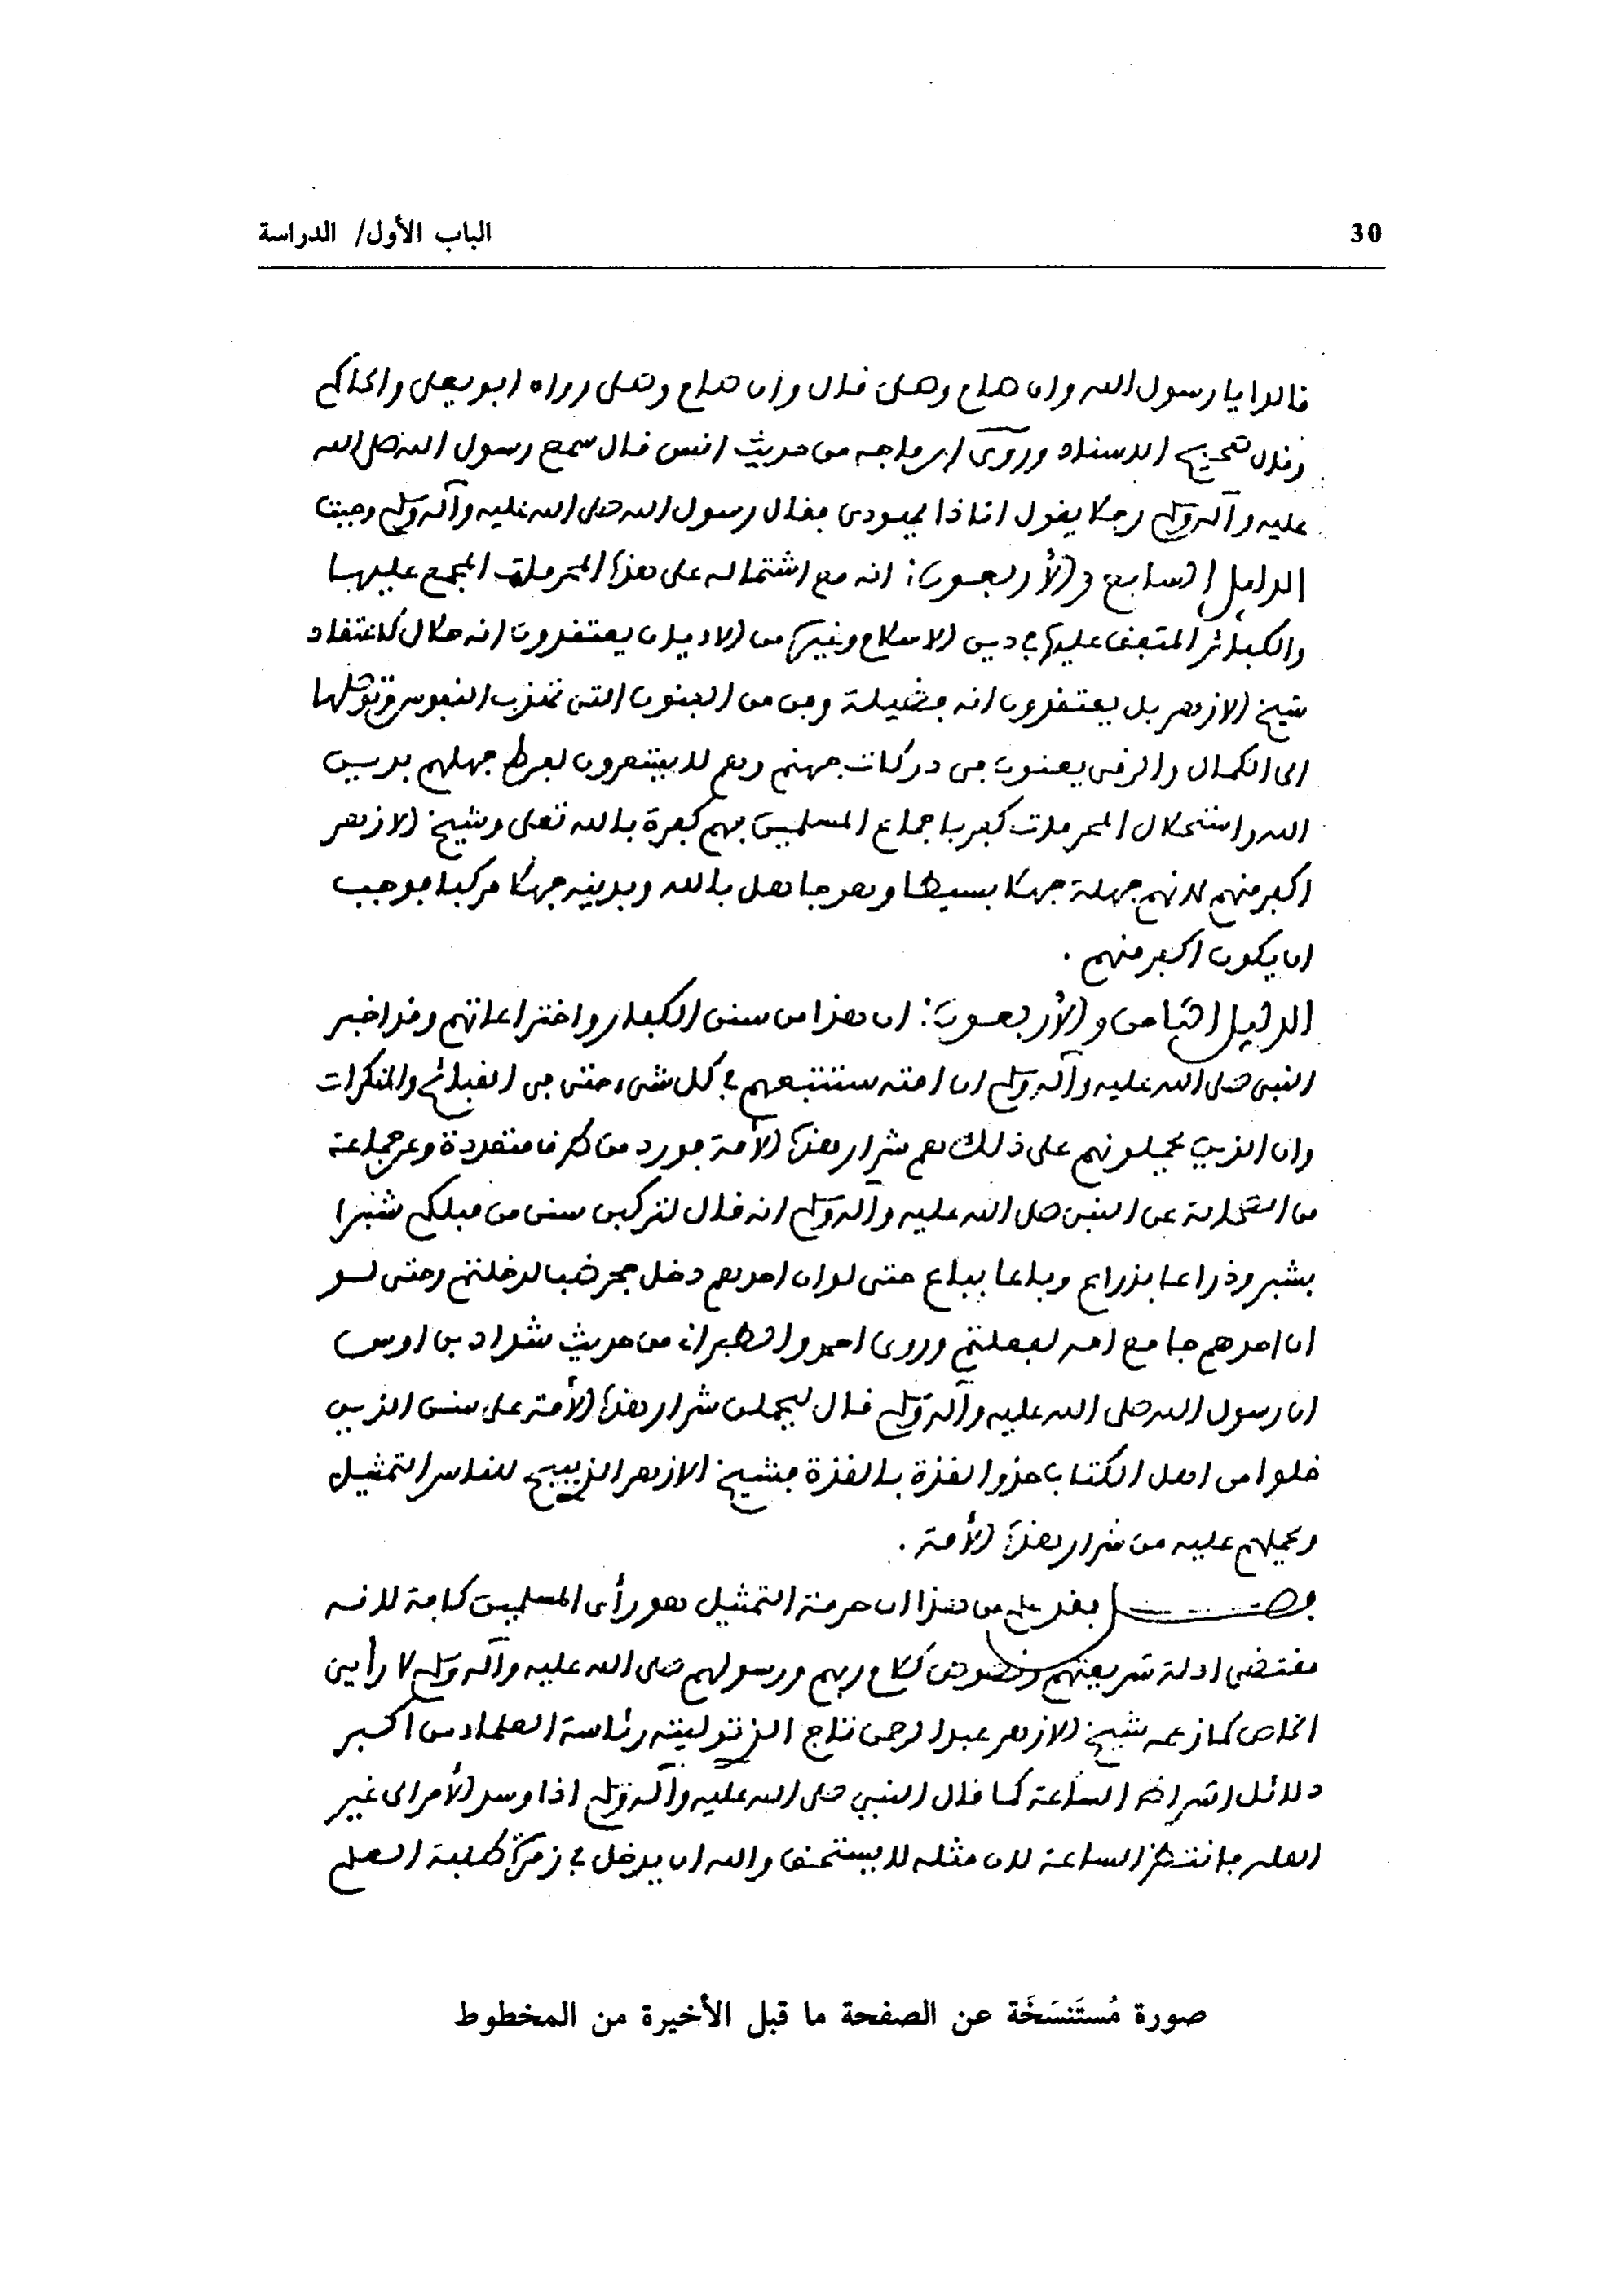 30
الباب الأول/ الدراسة
قالوا يا رسول الله وان صام وصلى قال وان صام وصلى رواه ابو يعلى والحاكم
وقال صحيح الاسناد وروى ابن ماجه من حديث انس قال سمع رسول الله صلى الله
عليه وآله وسلم رجلا يقول انا اذا ليهودى فقال رسول الله صلى الله عليه وآله وسلم وجبت
الدليل السابع والأربعون: انه مع اشتماله على هذه المحرمات المجمع عليها
والكبائر المتفق عليها في دين الاسلام وغيره من الاديان يعتقدون انه حلال كاعتقاد
شيخ الازهر بل يعتقدون انه فضيلة وفن من الفنون التى تهذب النفوس وتوصلها
الى الكمال والرقى يعنون فى دركات جهنم وهم لا يشعرون لفرط جهلهم بدين
الله واستحلال المحرمات كفر باجماع المسلمين فهم كفرة بالله تعلى وشيخ الازهر
اكفر منهم لانهم جهلة جهلا بسيطا وهو جاهل بالله وبدينه جهلا مركبا فوجب
ان يكون اكفر منهم .
الدليل الثامن والأربعون: ان هذا من سنن الكفار واختراعاتهم وقد اخبر
النبى صلى الله عليه وآله وسلم ان امته ستتبعهم في كل شىء حتى فى القبائح والمنكرات
وان الذين يحملونهم على ذلك هم شرار هذه الأمة فورد من طرق متعددة وعن جماعة
من الصحابة عن النبى صلى الله عليه وآله وسلم انه قال لتركبن سنن من قبلكم شبرا
بشبر وذراعا بذراع وباعا بباع حتى لو ان احدهم دخل جحر ضب لدخلتم وحتى لو
ان احدهم جامع امه لفعلتم وروى احمد والطبراني من حديث شداد بن اوس
ان رسول الله صلى الله عليه وآله وسلم قال ليحملن شرار هذه الأمة على سنن الذين
خلوا من اهل الكتاب حذو القذة بالقذة فشيخ الازهر الذى يبيح للناس التمثيل
ويحملهم عليه من شرار هذه الأمة .
فصل فقد علم من هذا ان حرمة التمثيل هو رأى المسلمين كافة لانه
مقتضى ادلة شريعتهم ونصوص كلام ربهم ورسولهم صلى الله عليه وآله وسلم لا رأيى
الخاص كما زعمه شيخ الازهر عبد الرحمن تاج الذى توليته رئاسة العلماء من اكبر
دلائل اشراط الساعة كما قال النبي صلى الله عليه وآله وسلم اذا وسد الأمر الى غير
اهله فانتظر الساعة لان مثله لا يستحق والله ان يدخل في زمرة طلبة العلم
صورة مُستَنسَخَة عن الصفحة ما قبل الأخيرة من المخطوط